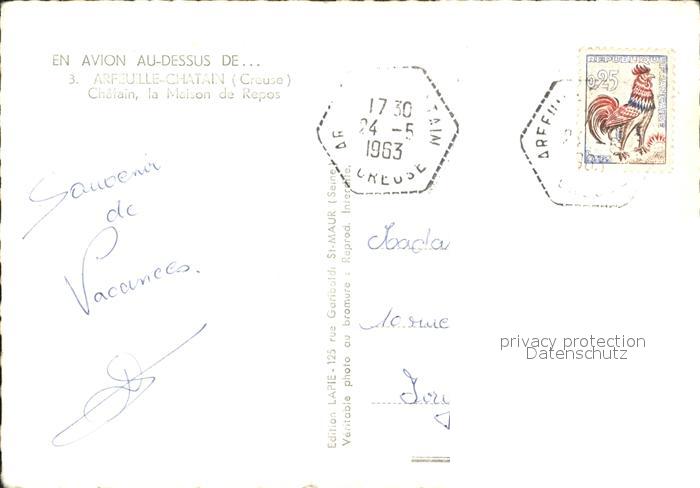 EN AVION AU-DESSUS DE...
3. ARFEUILLE-CHATAIN (Creuse)
Châtain, la Maison de Repos
Souvenir
de
Vacances.
17 30
24 -5
1963
CREUSE
AR
TAIN
Edition LAPIE - 125 rue Garibaldi St-MAUR (Seine)
Véritable photo au bromure : Reprod. Interdite.
REPUBLIQUE
FRANÇAISE
0,25
ARFEUI
privacy protection
Datenschutz